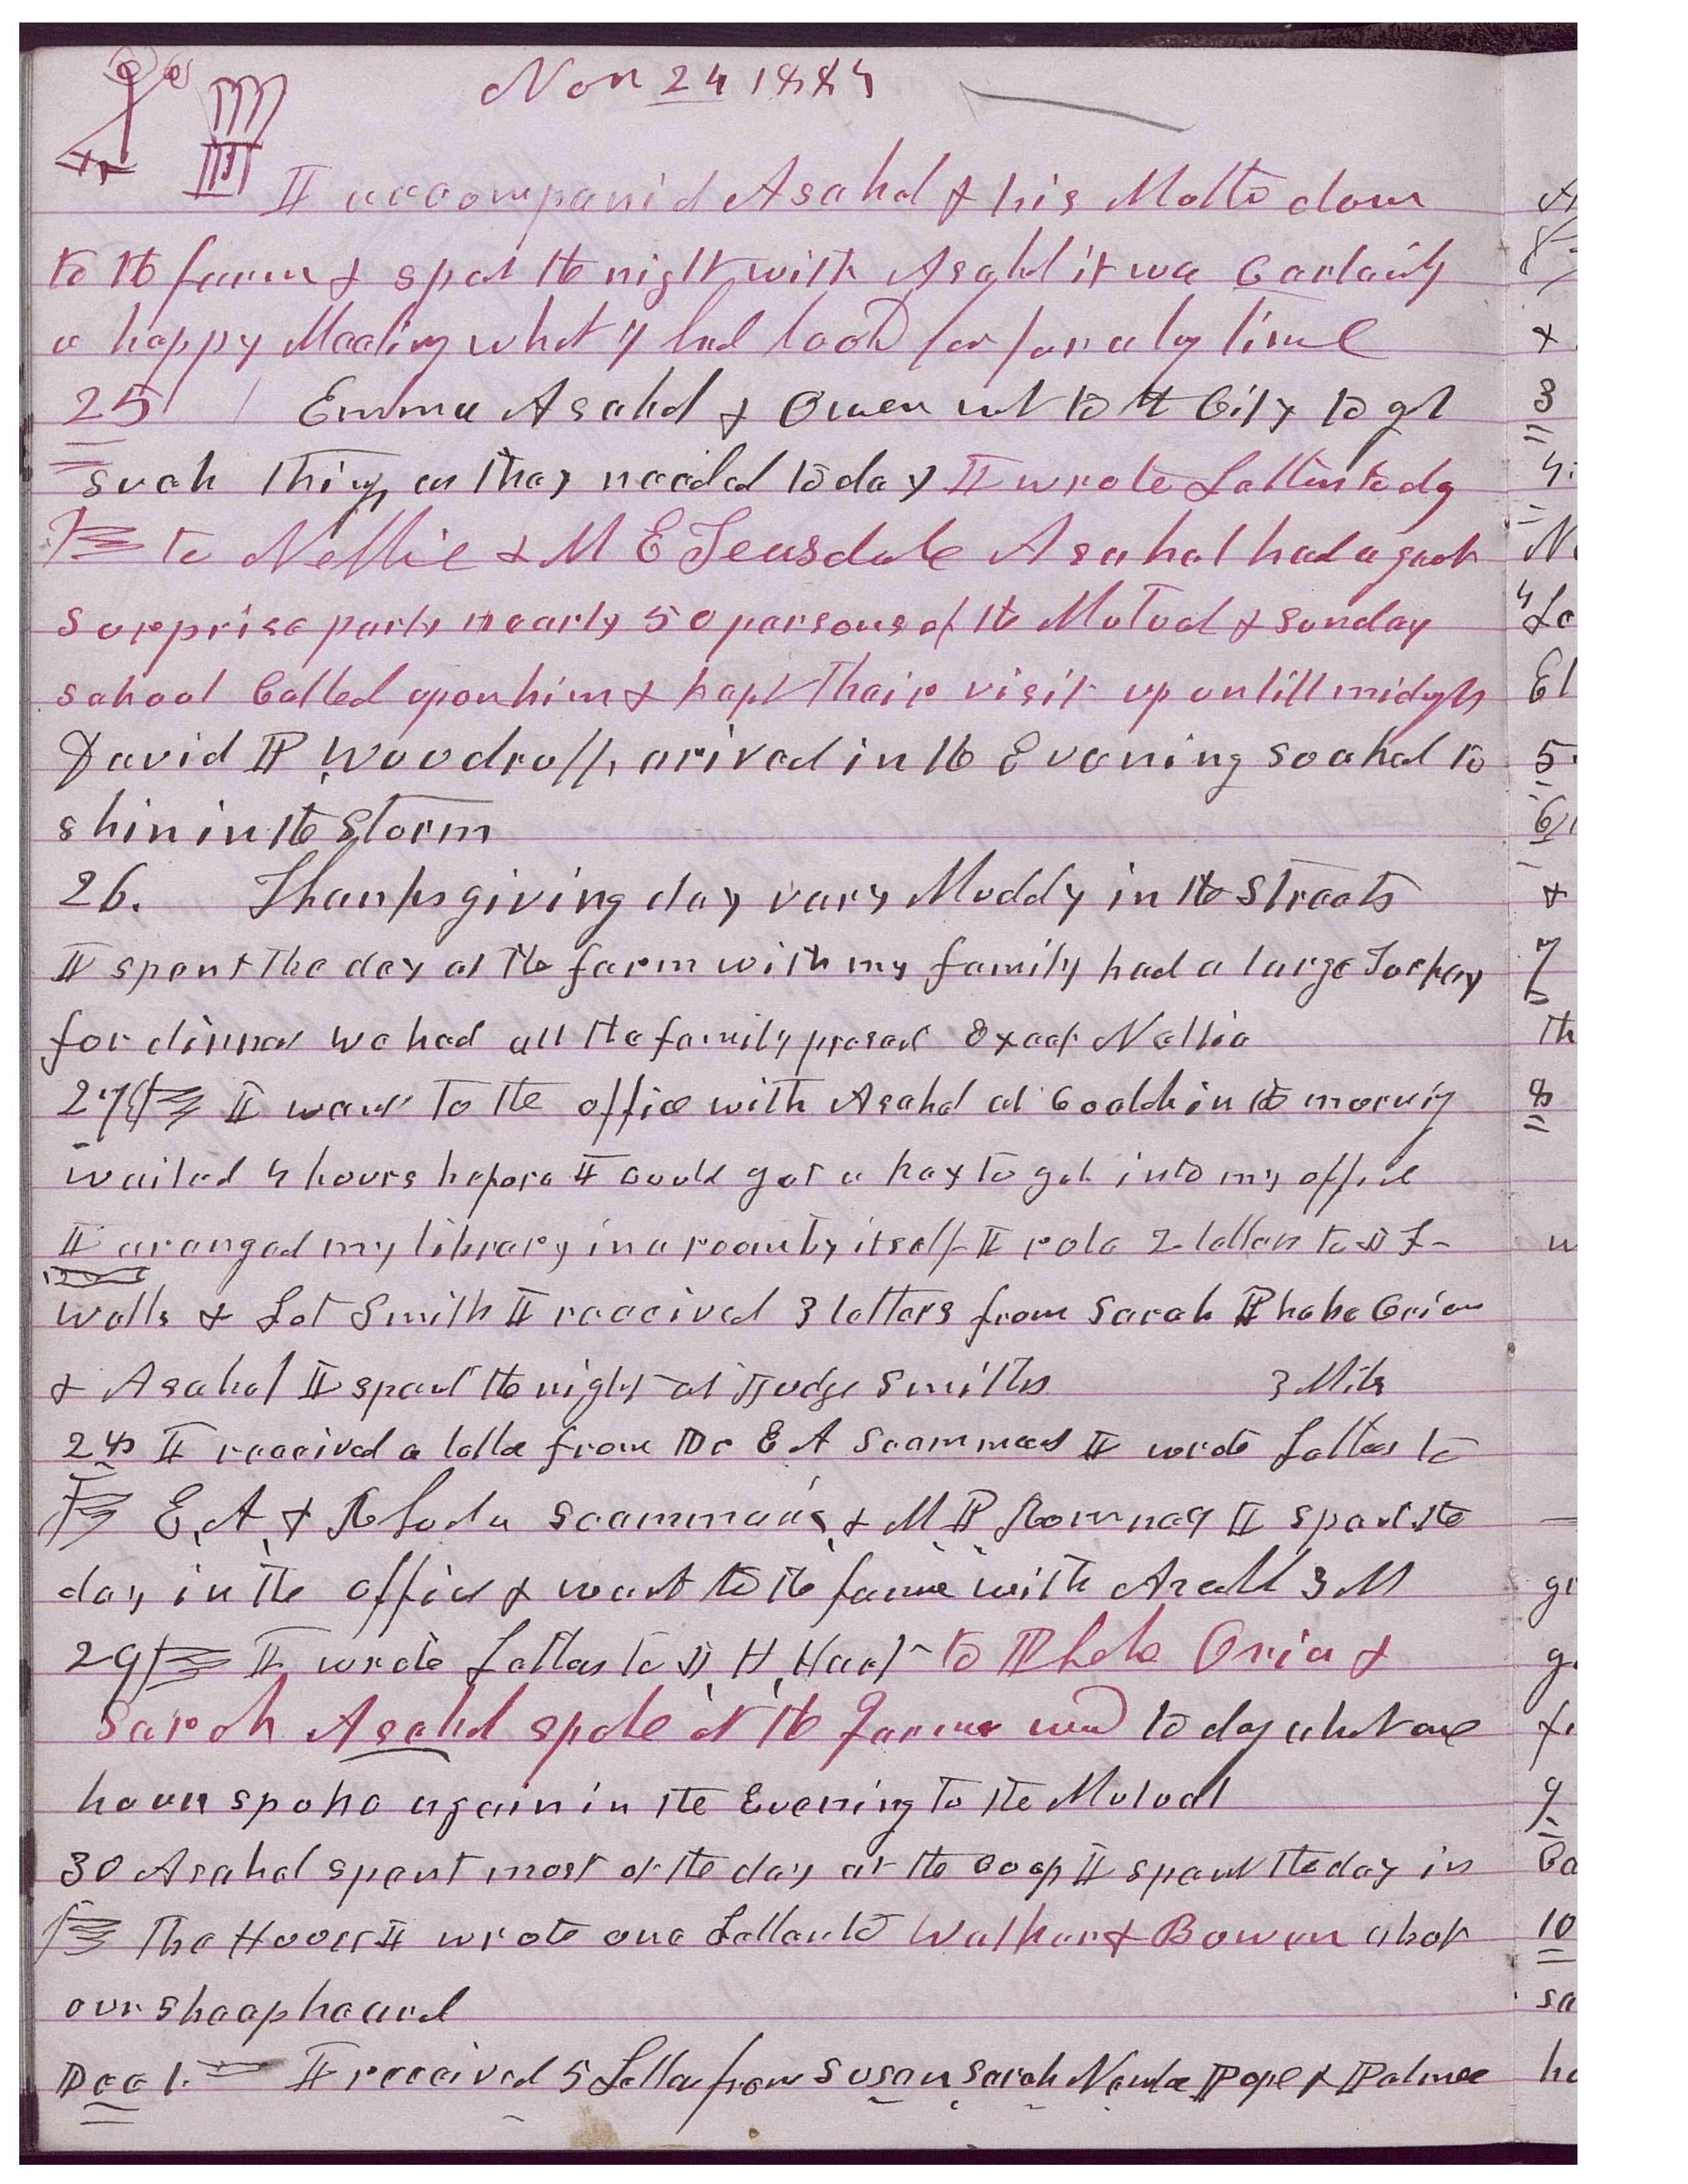 Nov 24 1885
I accompanied Asahel & his Mother down
to the farm & spent the night with Asahel it was Certainly
a happy Meeting what I had lookd for for a long time
25 Emma Asahel & Owen went to the City to get
such things as they needed to day I wrote Letters to day
to Nellie & M E Teasdale Asahel had a great
surprise party nearly 50 persons of the Mutual & Sunday
school Called upon him & kept their visit up untill midnight
David P Woodruff, arived in the Evening soaked to
skin in the storm
26. Thanksgiving day very Muddy in the Streets
I spent the day at the farm with my family had a large Turkey
for dinner we had all the family present Except Nellie
27 I went to the office with Asahel at 6 oclok in the morning
waited 4 hours before I could get a key to get into my office
I aranged my library in a room by itself I rote 2 letters to D F
Wells & Lot Smith I received 3 letters from Sarah Phebe Orion
& Asahel I spent the night at Judge Smiths 3 Mils
28 I received a letter from Dr E A Scammans I wrote Letters to
E, A, & Rhoda Scammans, & M P Romney I spent the
day in the office & went to the farm with Asahel 3 M
29 I wrote Letters to D, H, to Phebe Orion &
Sarah Asahel spoke at the Farmer ward to day about one
hour spoke again in the Evening to the Mutual
30 Asahel spent most of the day at the coop I spent the day in
The House I wrote one Letter to Walker & Bowen about
our sheap heard
Dec 1. I received 5 Letters from Susan Sarah Newton Pope & Palmer